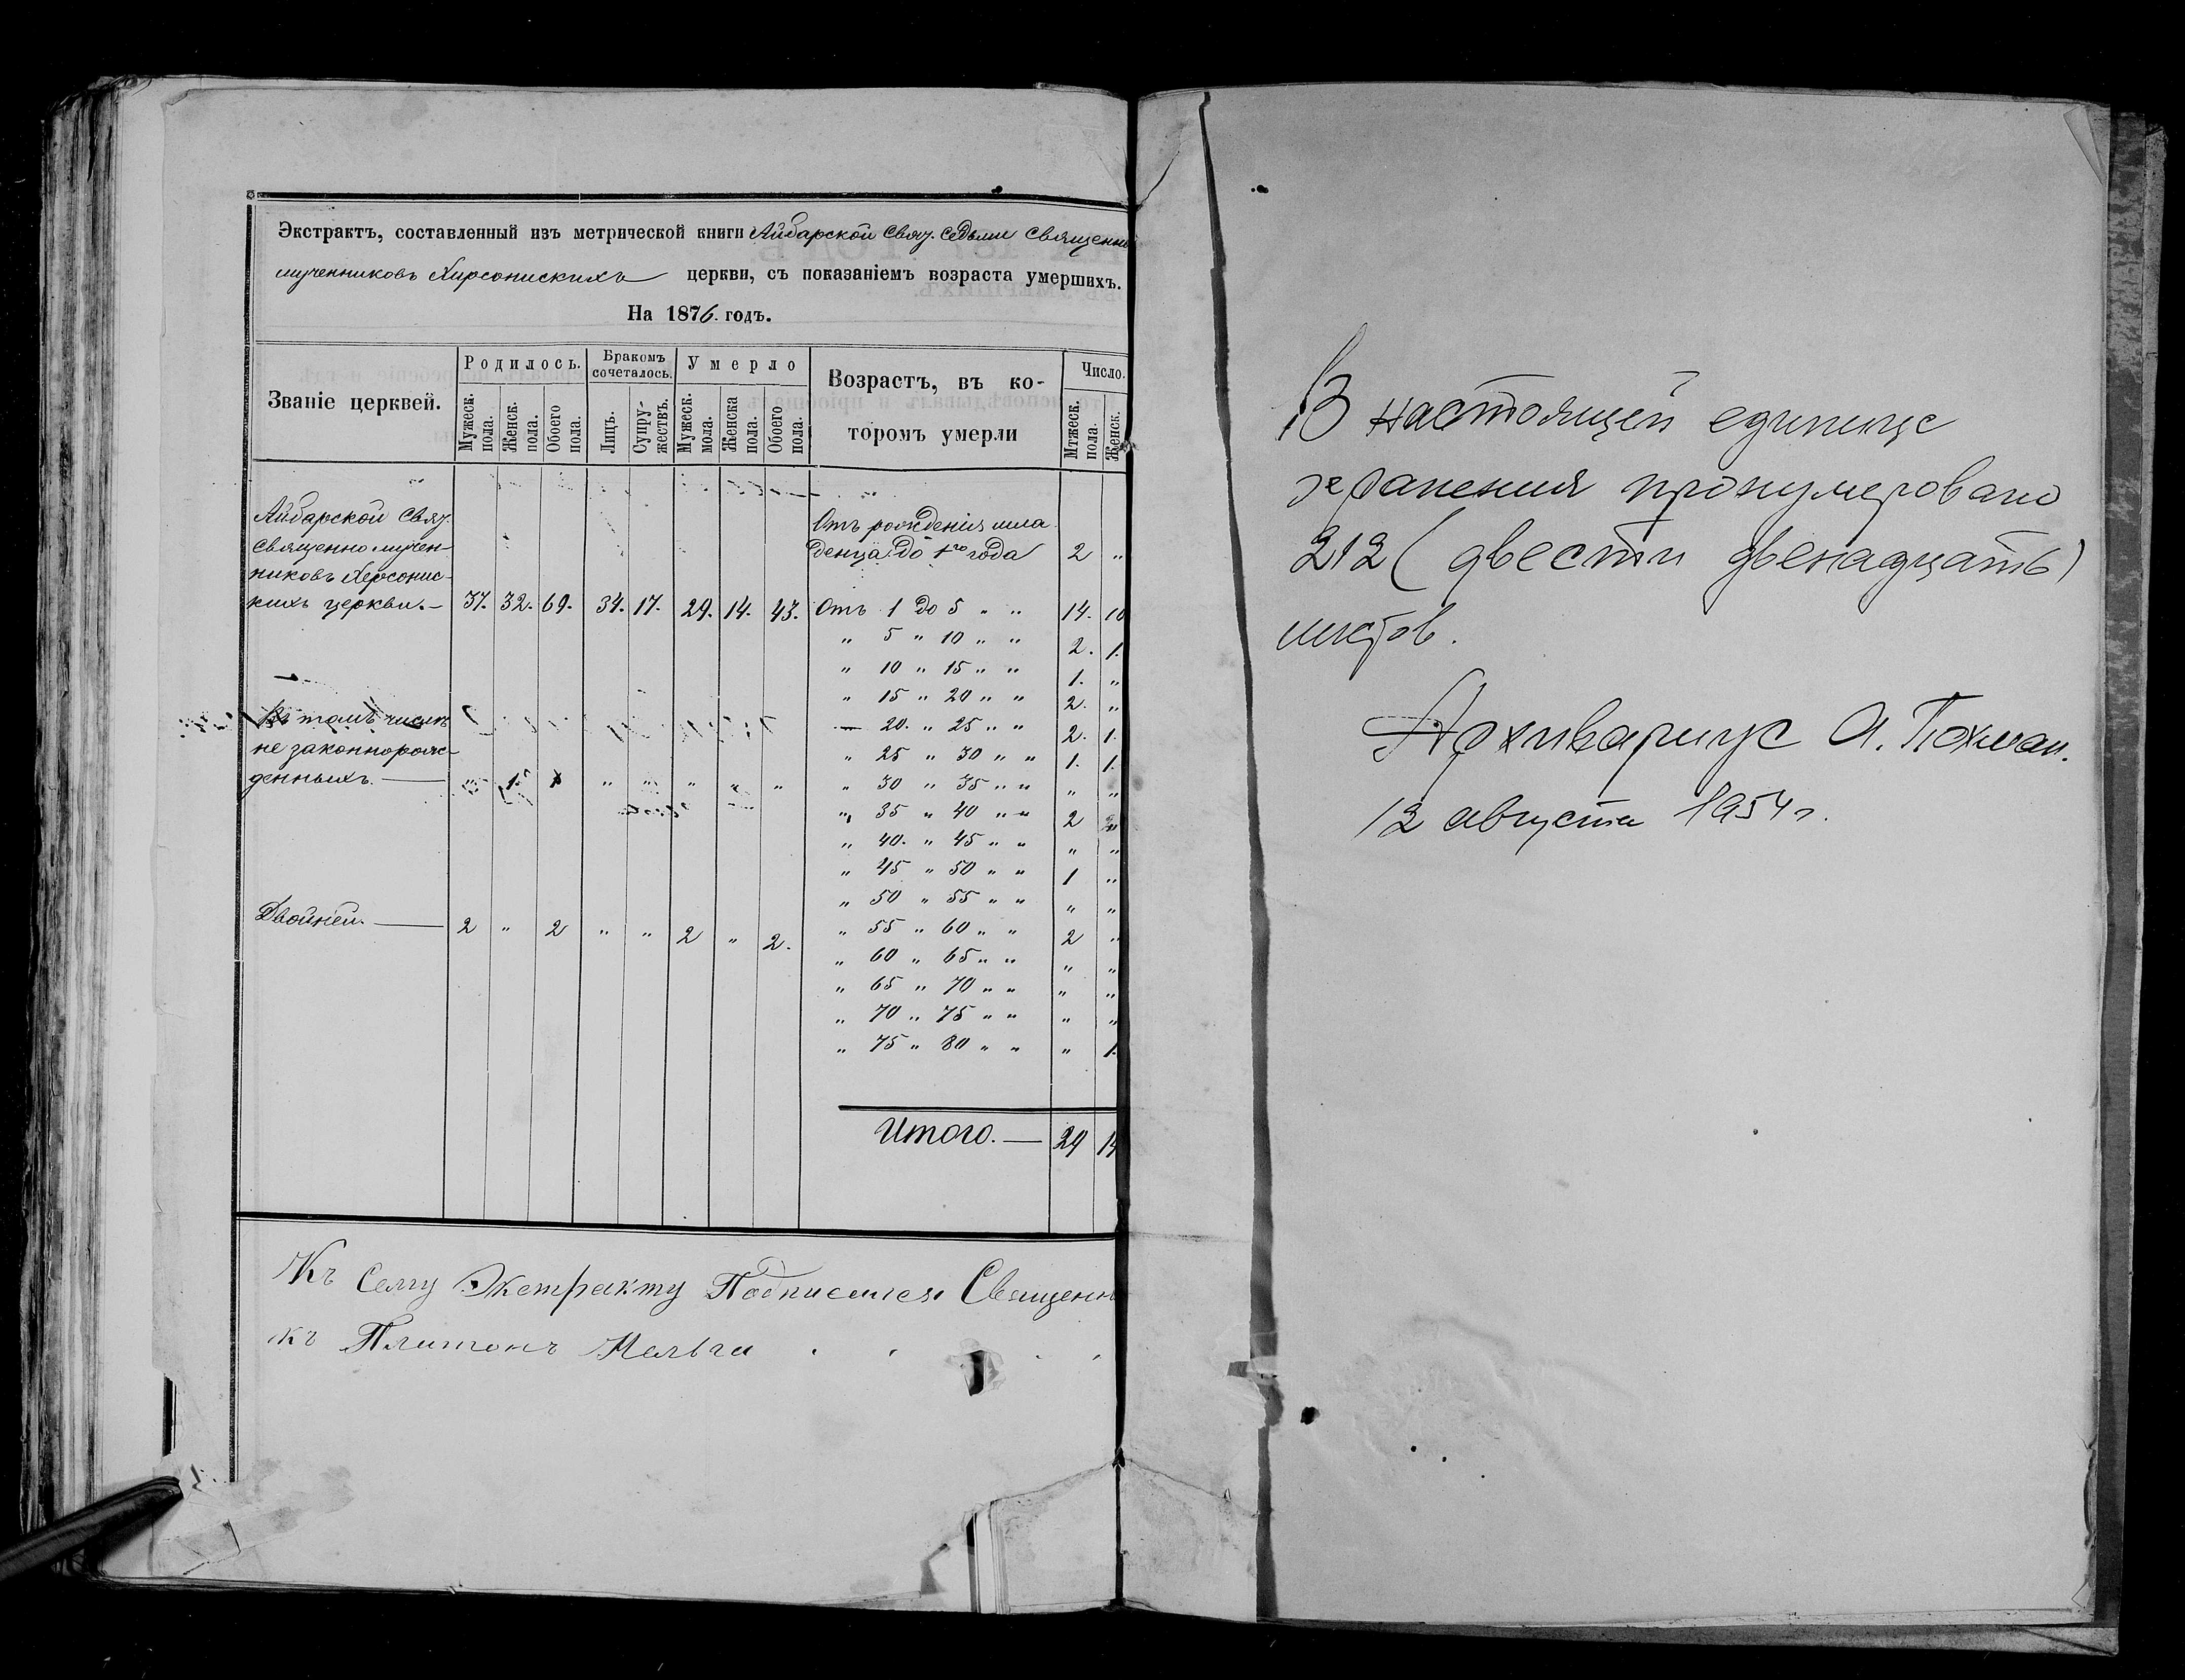 Экстрактъ, составленный изъ метрической книги Айбарской Свящ. Седьми Священно
мученниковъ Херсонискихъ церкви, съ показаніемъ возраста умершихъ.
На 1876. годъ.
Званіе церквей.
Родилось.
Бракомъ сочеталось.
Умерло
Возрастъ, въ ко-
торомъ умерли
Число.
Мужеск. пола.
Женск. пола.
Обоего пола.
Лицъ.
Супру-жествъ.
Мужеск. мола.
Женска пола.
Обоего пола.
Мтжеск. пола.
Женск.
Айбарской Свящ.
Священномучен-
никовъ Херсонис-
кихъ церкви.— 37. 32. 69. 34. 17. 29. 14. 43.
Въ томъ числѣ
не законнорож-
денныхъ.— " 1. 1 " " " " "
Двойней.— 2 " 2 " " 2 " 2.
Отъ рожденія мла
денца до 1го года 2 "
Отъ 1 до 5 " " 14. 10
" 5 " 10 " " 2. 1.
" 10 " 15 " " 1. "
" 15 " 20 " " 2. "
— 20. " 25 " " 2. 1.
" 25 " 30 " " 1. 1.
" 30 " 35 " " " "
" 35 " 40 " " 2 "
" 40. " 45 " " " "
" 45 " 50 " " 1 "
" 50 " 55 " " " "
" 55 " 60 " " 2 "
" 60 " 65 " " " "
" 65 " 70 " " " "
" 70 " 75 " " " "
" 75 " 80 " " " 1.
Итого.— 29 14
Къ Сему Экстракту Подписался Священн
къ Платонъ
В настоящей единице
хранения пронумеровано
212 (двести двенадцать)
листов.
Архивариус А. Гохман.
12 августа 1954 г.